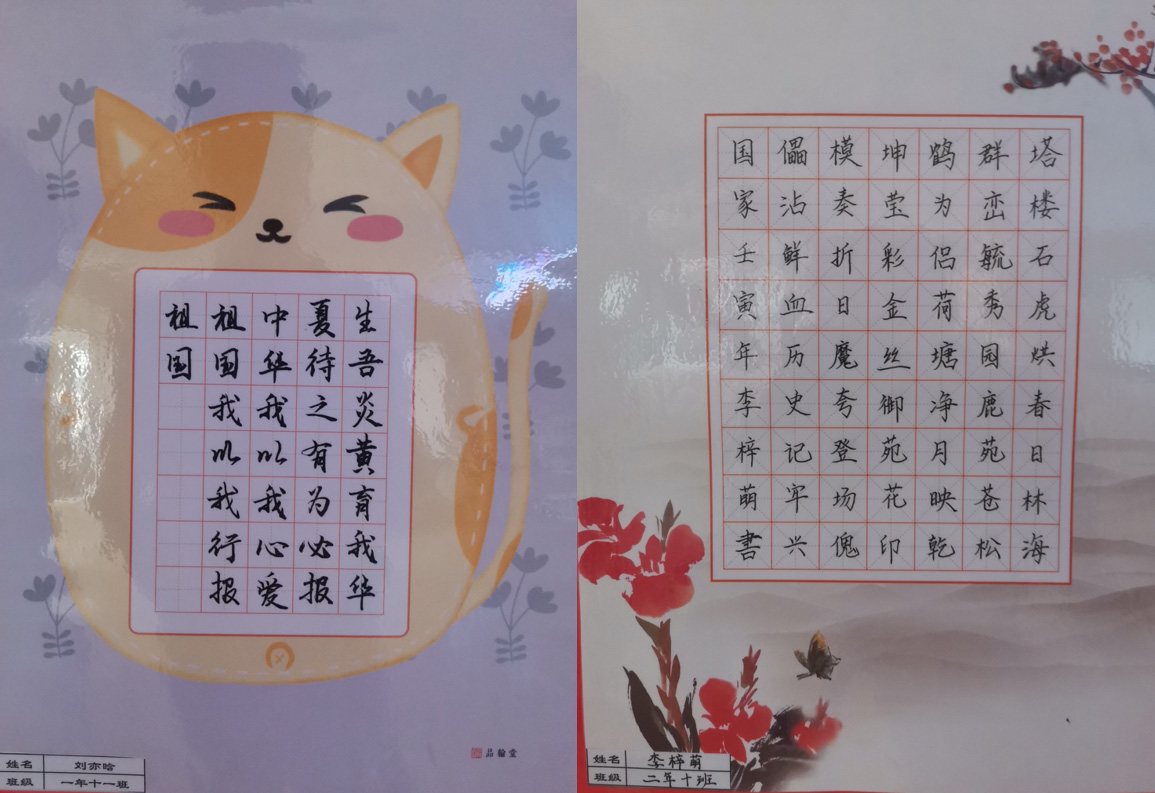 生吾炎黄育我华
夏待之有为必报
中华我以我心爱
祖国我以我行报
祖国
品翰堂
姓名 刘亦晗
班级 一年十一班
塔楼石虎烘春日林海
群峦毓秀园鹿苑苍松
鹤为侣荷塘净月映乾
坤莹彩金丝御苑花印
模奏折日魔夸登场傀
儡沾鲜血历史记牢兴
国家壬寅年李梓萌書
姓名 李梓萌
班级 二年十班